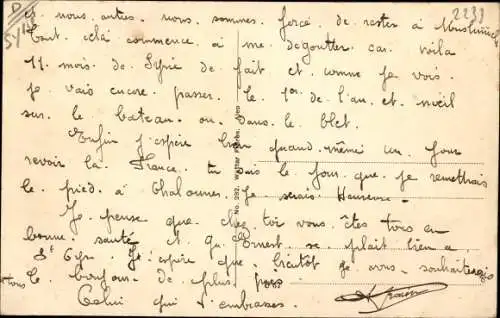 et nous autres nous sommes forcé de rester à
tout celà commence à me dégoutter car voila
11 mois de Syrie de fait et comme je vois
je vais encore passer le 1er de l'an et noël
sur le bateau ou dans le blet.
Enfin j'espère bien quand même un jour
revoir la France. tu sais le jour que je remettrais
le pied à Chalonnes je serais Heureuse
Je pense que chez toi vous êtes tous en
bonne santé et qu' Ernest se plait bien a
St Cyr. J'espère que bientôt je vous souhaiterais
tous le bonjour de plus près
Celui qui t'embrasses.
2233
No. 292. Wattar frères, Alep